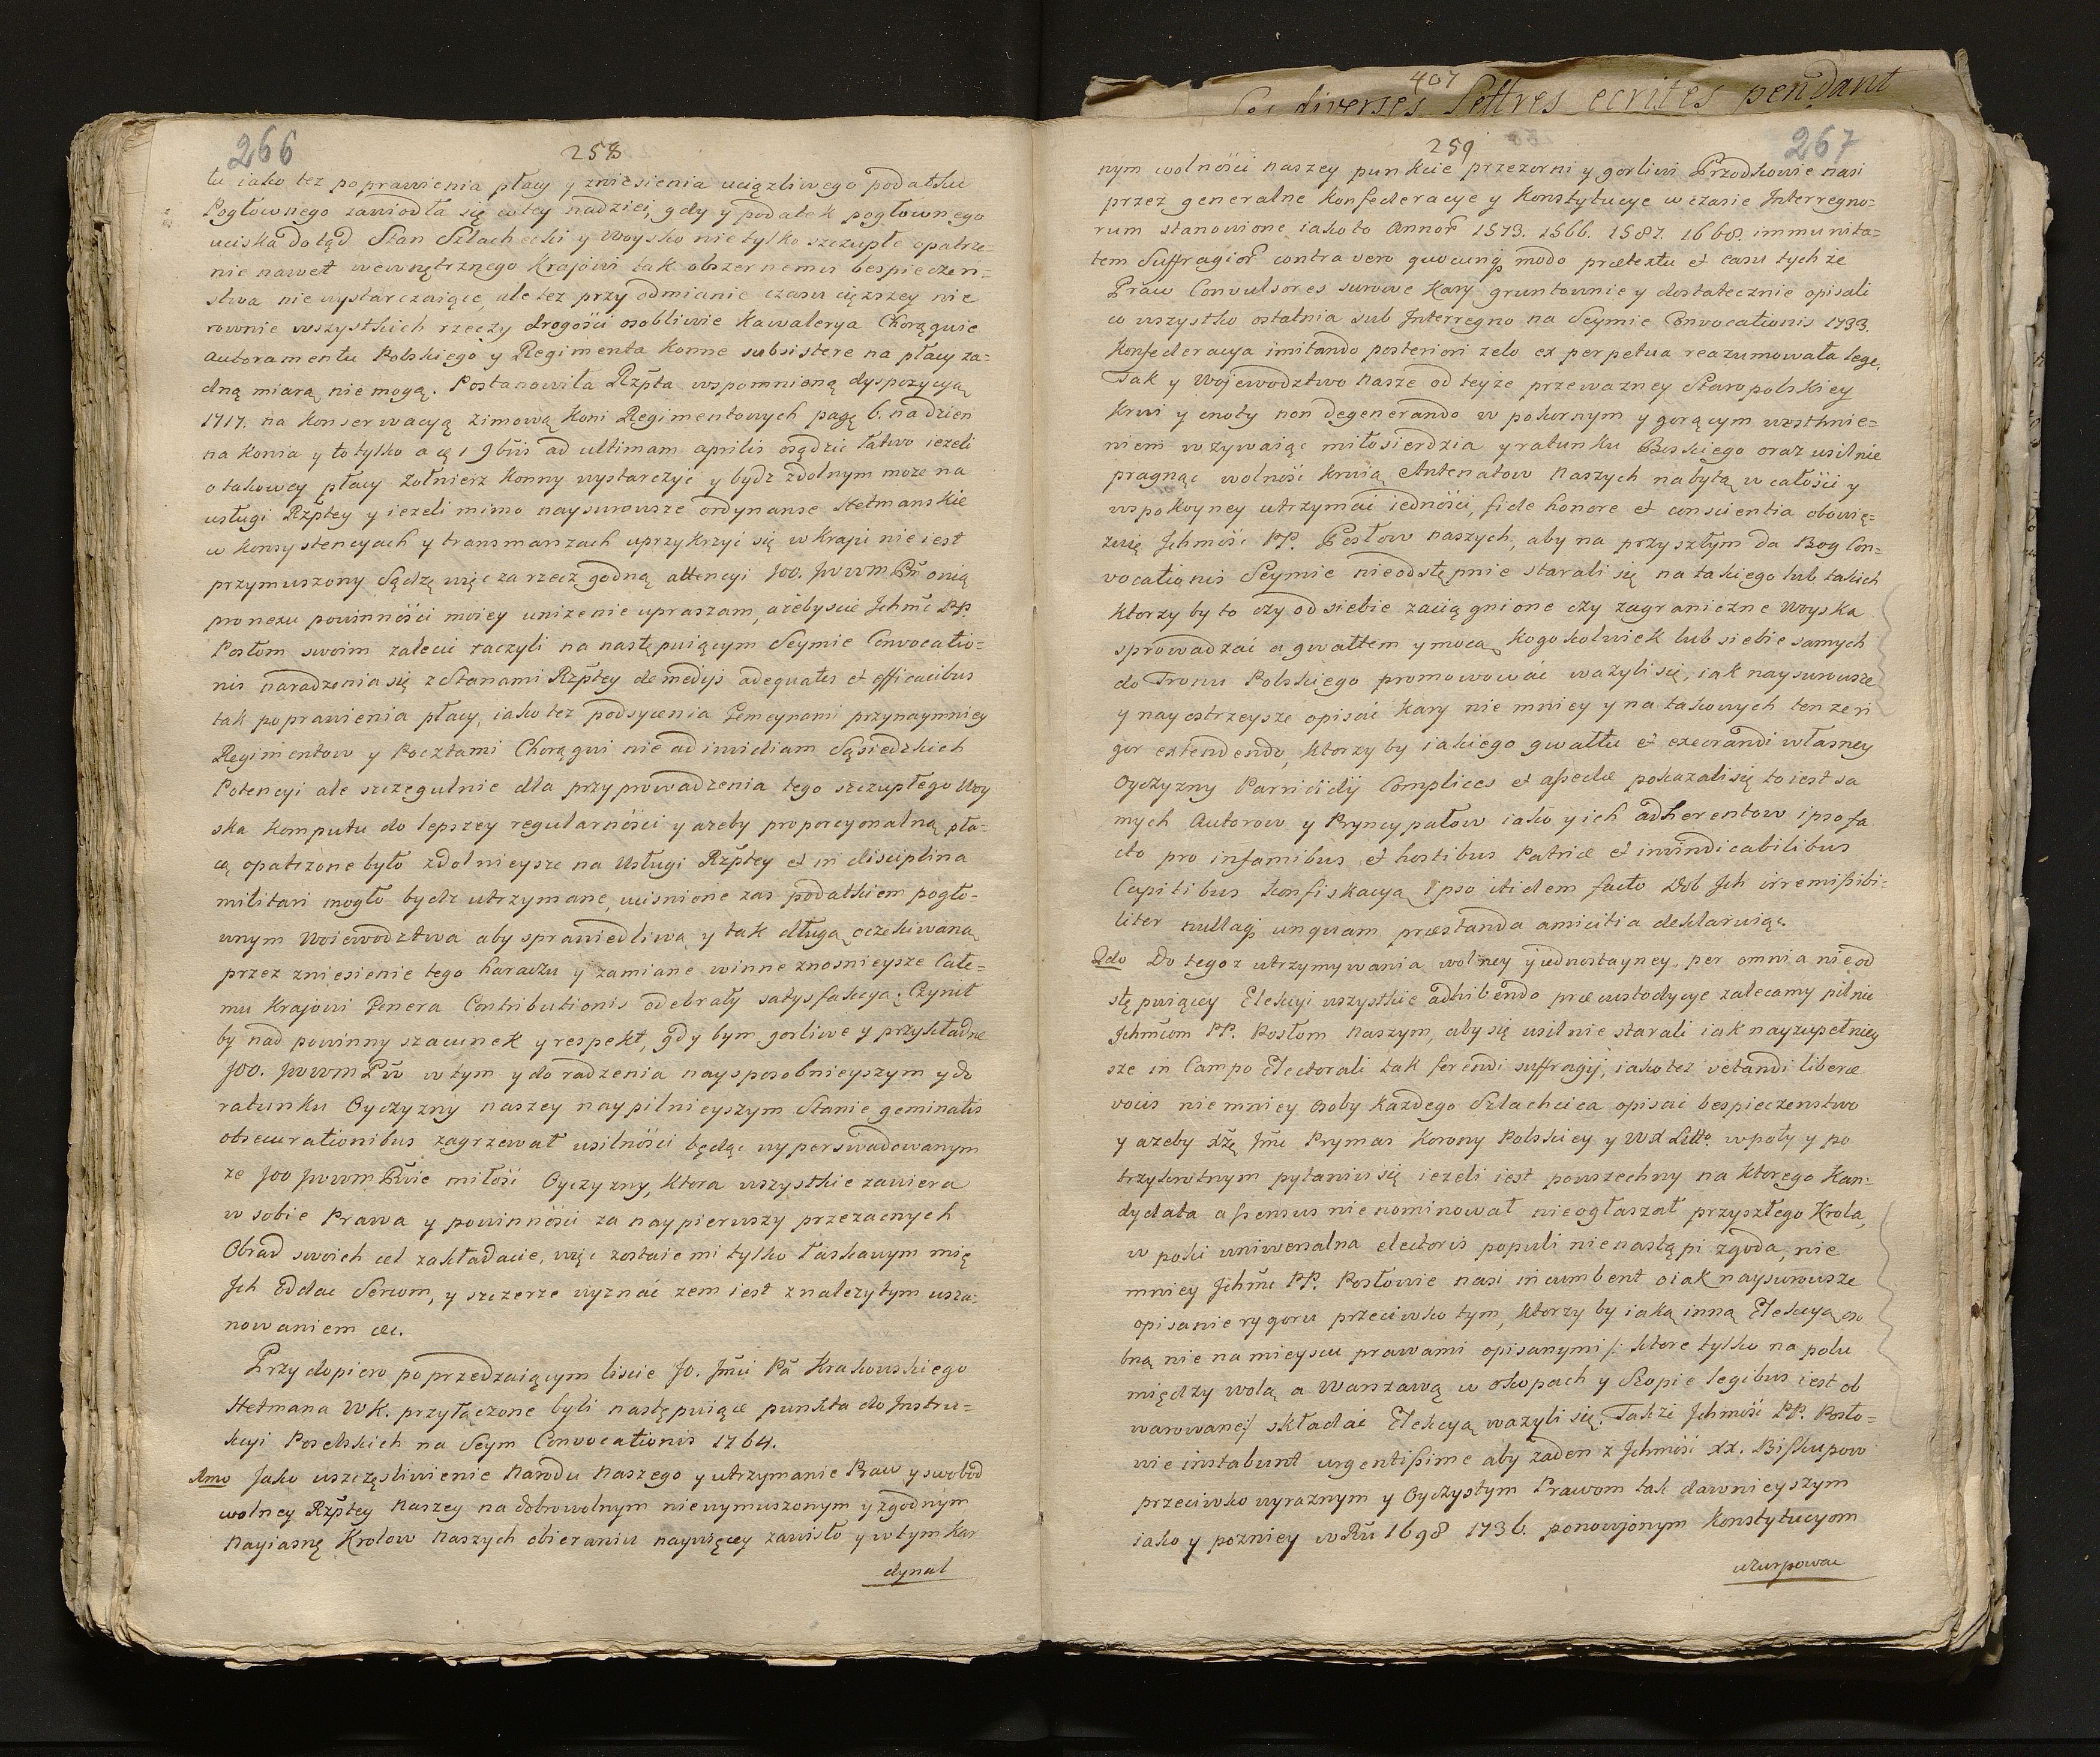 266
258
tu iako tez poprawienia płacy y zniesienia uciązliwego podatku
Pogłownego zawiodła się w tey nadziei, gdy y podatek pogłownego
uciska dotąd Stan Szlachecki y Woysko nie tylko szczupłe opatrze
nie nawet wewnętrznego Krajowi tak obszernemu bespieczen=
stwa niewystarczaiące, ale tez przy odmianie czasu cięzszey nie
rownie wszystkich rzeczy drogości osobliwie Kawalerya Chorągwie
autoramentu Polskiego y Regimenta Konne subsistere na płacy za=
dną miarą nie mogą. Postanowiła Rzpta wspomnioną dyspozycyą
1717. na Konserwacyą zimową Koni Regimentowych pagę 6. na dzien
na Konia y to tylko a 1 9bris ad ultimam aprilis osądzic łatwo iezeli
o takowey płacy Zołnierz Konny wystarczyć y bydz zdolnym moze na
usługi Rzptey y iezeli mimo naysurowsze ordynanse Hetmanskie
w Konsystencyach y transmarszach uprzykrzyć się w Kraju nie iest
przymuszony Sądzę więc za rzecz godną attencyi JOO. JWWM Pn onią
pro nexu powinności moiey unizenie upraszam, azebyscie Ichmc PP.
Posłom swoim zalecic raczyli na następuiącym Seymie Convocatio=
nis naradzenia się z Stanami Rzptey de medijs adequates et efficacibus
tak poprawienia płacy, iako tez podsycenia Gemeynami przynaymniey
Regimentow y Pocztami Chorągwi nie ad invidiam Sąsiedzkich
Potencyi ale szczegulnie dla przyprowadzenia tego szczupłego Woy
ska Komputu do lepszey regularności y azeby proporcyonalną pła=
cą opatrzone było zdolnieysze na Usługi Rzptey et in disciplina
militari mogło bydz utrzymane, ucisnione zas podatkiem pogło=
wnym Woiewodztwa aby sprawiedliwą y tak długą oczekiwaną
przez zniesienie tego haraczu y zamiane winne znosnieysze Całe=
mu Krajowi Genera Contributionis odebrały satysfakcyą. Czynił
by nad powinny szacunek y respekt, gdy bym gorliwe y przykładne
JOO. JWWM Pw w tym y do radzenia naysposobnieyszym y do
ratunku Oyczyzny naszey naypilnieyszym Stanie geminatis
obsecrationibus zagrzewał usilności będąc wyperswadowanym
ze JOO JWWM Pwie miłość Oyczyzny, Ktora wszystkie zawiera
w sobie Prawa y powinności za naypierwszy przezacnych
Obrad swoich cel zakładacie, więc zostaie mi tylko łaskawym mię
Ich Oddac Sercom, y szczerze wyznać zem iest z nalezytym usza=
nowaniem &c.
Przy dopiero poprzedzaiącym liscie JO. Jmci Pa Krakowskiego
Hetmana WK. przyłączone byli następuiące punkta do Instru=
kcyi Poselskich na Seym Convocationis 1764.
1mo Jako uszczęsliwienie Narodu Naszego y utrzymanie Praw y swobod
wolney Rzptey Naszey na dobrowolnym niewymuszonym y zgodnym
Nayiasnę Krolow Naszych obieraniu naywięcey zawisło y w tym Kar
dynal
407
diverses lettres ecrites pendant
259
267
nym wolności naszey punkcie przezorni y gorliwi Przodkowie nasi
przez generalne Konfederacye y Konstytucye w czasie Interregno=
rum stanowione iako to Annor 1573. 1566. 1587. 1668. immunita=
tem Suffragior contra vero quocunq modo prætextu et casu tych ze
Praw Convulsores surowe Kary gruntownie y dostatecznie opisali
co wszystko ostatnia sub Interregno na Seymie Convocationis 1733.
Konfederacya imitando posteriori zelo ex perpetua reazumowała lege.
Tak y Wojewodztwo Nasze od teyze przewazney Staropolskiey
Krwi y cnoty non degenerando w pokornym y gorącym westhnie=
niem wzywaiąc miłosierdzia y ratunku Boskiego oraz usilnie
pragnąc wolność Krwią Antenatow Naszych nabytą w całości y
wspokoyney utrzymać iedności, fide honore et conscientia obowię=
zuię Ichmość PP. Posłow naszych, aby na przyszłym da Bog Con=
vocationis Seymie nieodstępnie starali się na takiego lub takich
Ktorzy by to czy od siebie zaciągnione czy zagraniczne Woyska
sprowadzać a gwałtem y mocą Kogo kolwiek lub siebie samych
do Tronu Polskiego promowować wazyli się, iak naysurowsze
y nayostrzeysze opisać Kary nie mniey y na takowych ten ze ri
gor extendendo, Ktorzy by iakiego gwałtu et execrandi własney
Oyczyzny Parricidij Complices et asseclæ pokazali się to iest sa
mych Autorow y Pryncypałow iako y ich adherentow ipso fa
cto pro infamibus et hostibus Patriæ et invindicabilibus
Capitibus Konfiskacyą ipso itidem facto Dob Ich irremissibi=
liter nullaq unquam præstanda amicitia deklaruiąc.
2do Do tegoz utrzymywania wolney y iednostayney per omnia nieod
stępuiącey Elekcyi wszystkie adhibendo præcustodycye zalecamy pilnie
Ichmciom PP. Posłom Naszym, aby się usilnie starali iak nayzupełniey
sze in Campo Electorali tak ferendi suffragij, iako tez vetandi liberæ
vocis niemniey Osoby Kazdego Szlachcica opisać bespieczenstwo
y azeby Xżę Jmc Prymas Korony Polskiey y WX Litto wpoły y po
trzykrotnym pytaniu się iezeli iest powszechny na Ktorego Kan=
dydata assensus nienominował nieogłaszał przyszłego Krola,
w poki uniwersalna electoris populi nienastąpi zgoda, nie
mniey Ichmc PP. Posłowie nasi incumbent o iak naysurowsze
opisanie rygoru przeciwko tym, Ktorzy by iaką inną Elekcyą oso
bną nie na mieyscu prawami opisanymi /: Ktore tylko na polu
między wolą a Warszawą w okopach y Szopie legibus iest ob
warowane/ składać Elekcyą wazyli się. Takze Ichmość PP. Posło=
wie instabunt urgentissime aby zaden z Ichmość XX. Biskupow
przeciwko wyraznym y Oyczystym Prawom tak dawnieyszym
iako y pozniey w Ru 1698 1736. ponowionym Konstytucyom
uzurpowac